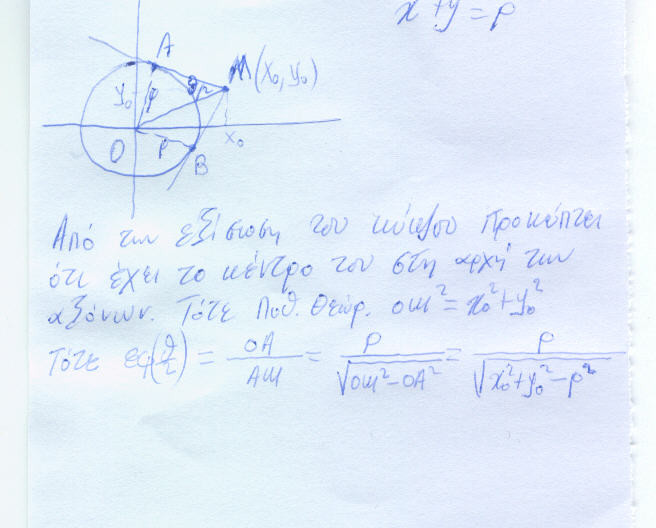 x + y = ρ
A
M(x₀, y₀)
y₀
ρ
O
ρ
x₀
B
Από την εξίσωση του κύκλου προκύπτει
ότι έχει το κέντρο του στη αρχή των
αξόνων. Τότε Πυθ. Θεώρ. ΟΜ² = x₀² + y₀²
Τότε εφ(θ/2) = ΟΑ/ΑΜ = ρ/√(ΟΜ² - ΟΑ²) = ρ/√(x₀² + y₀² - ρ²)